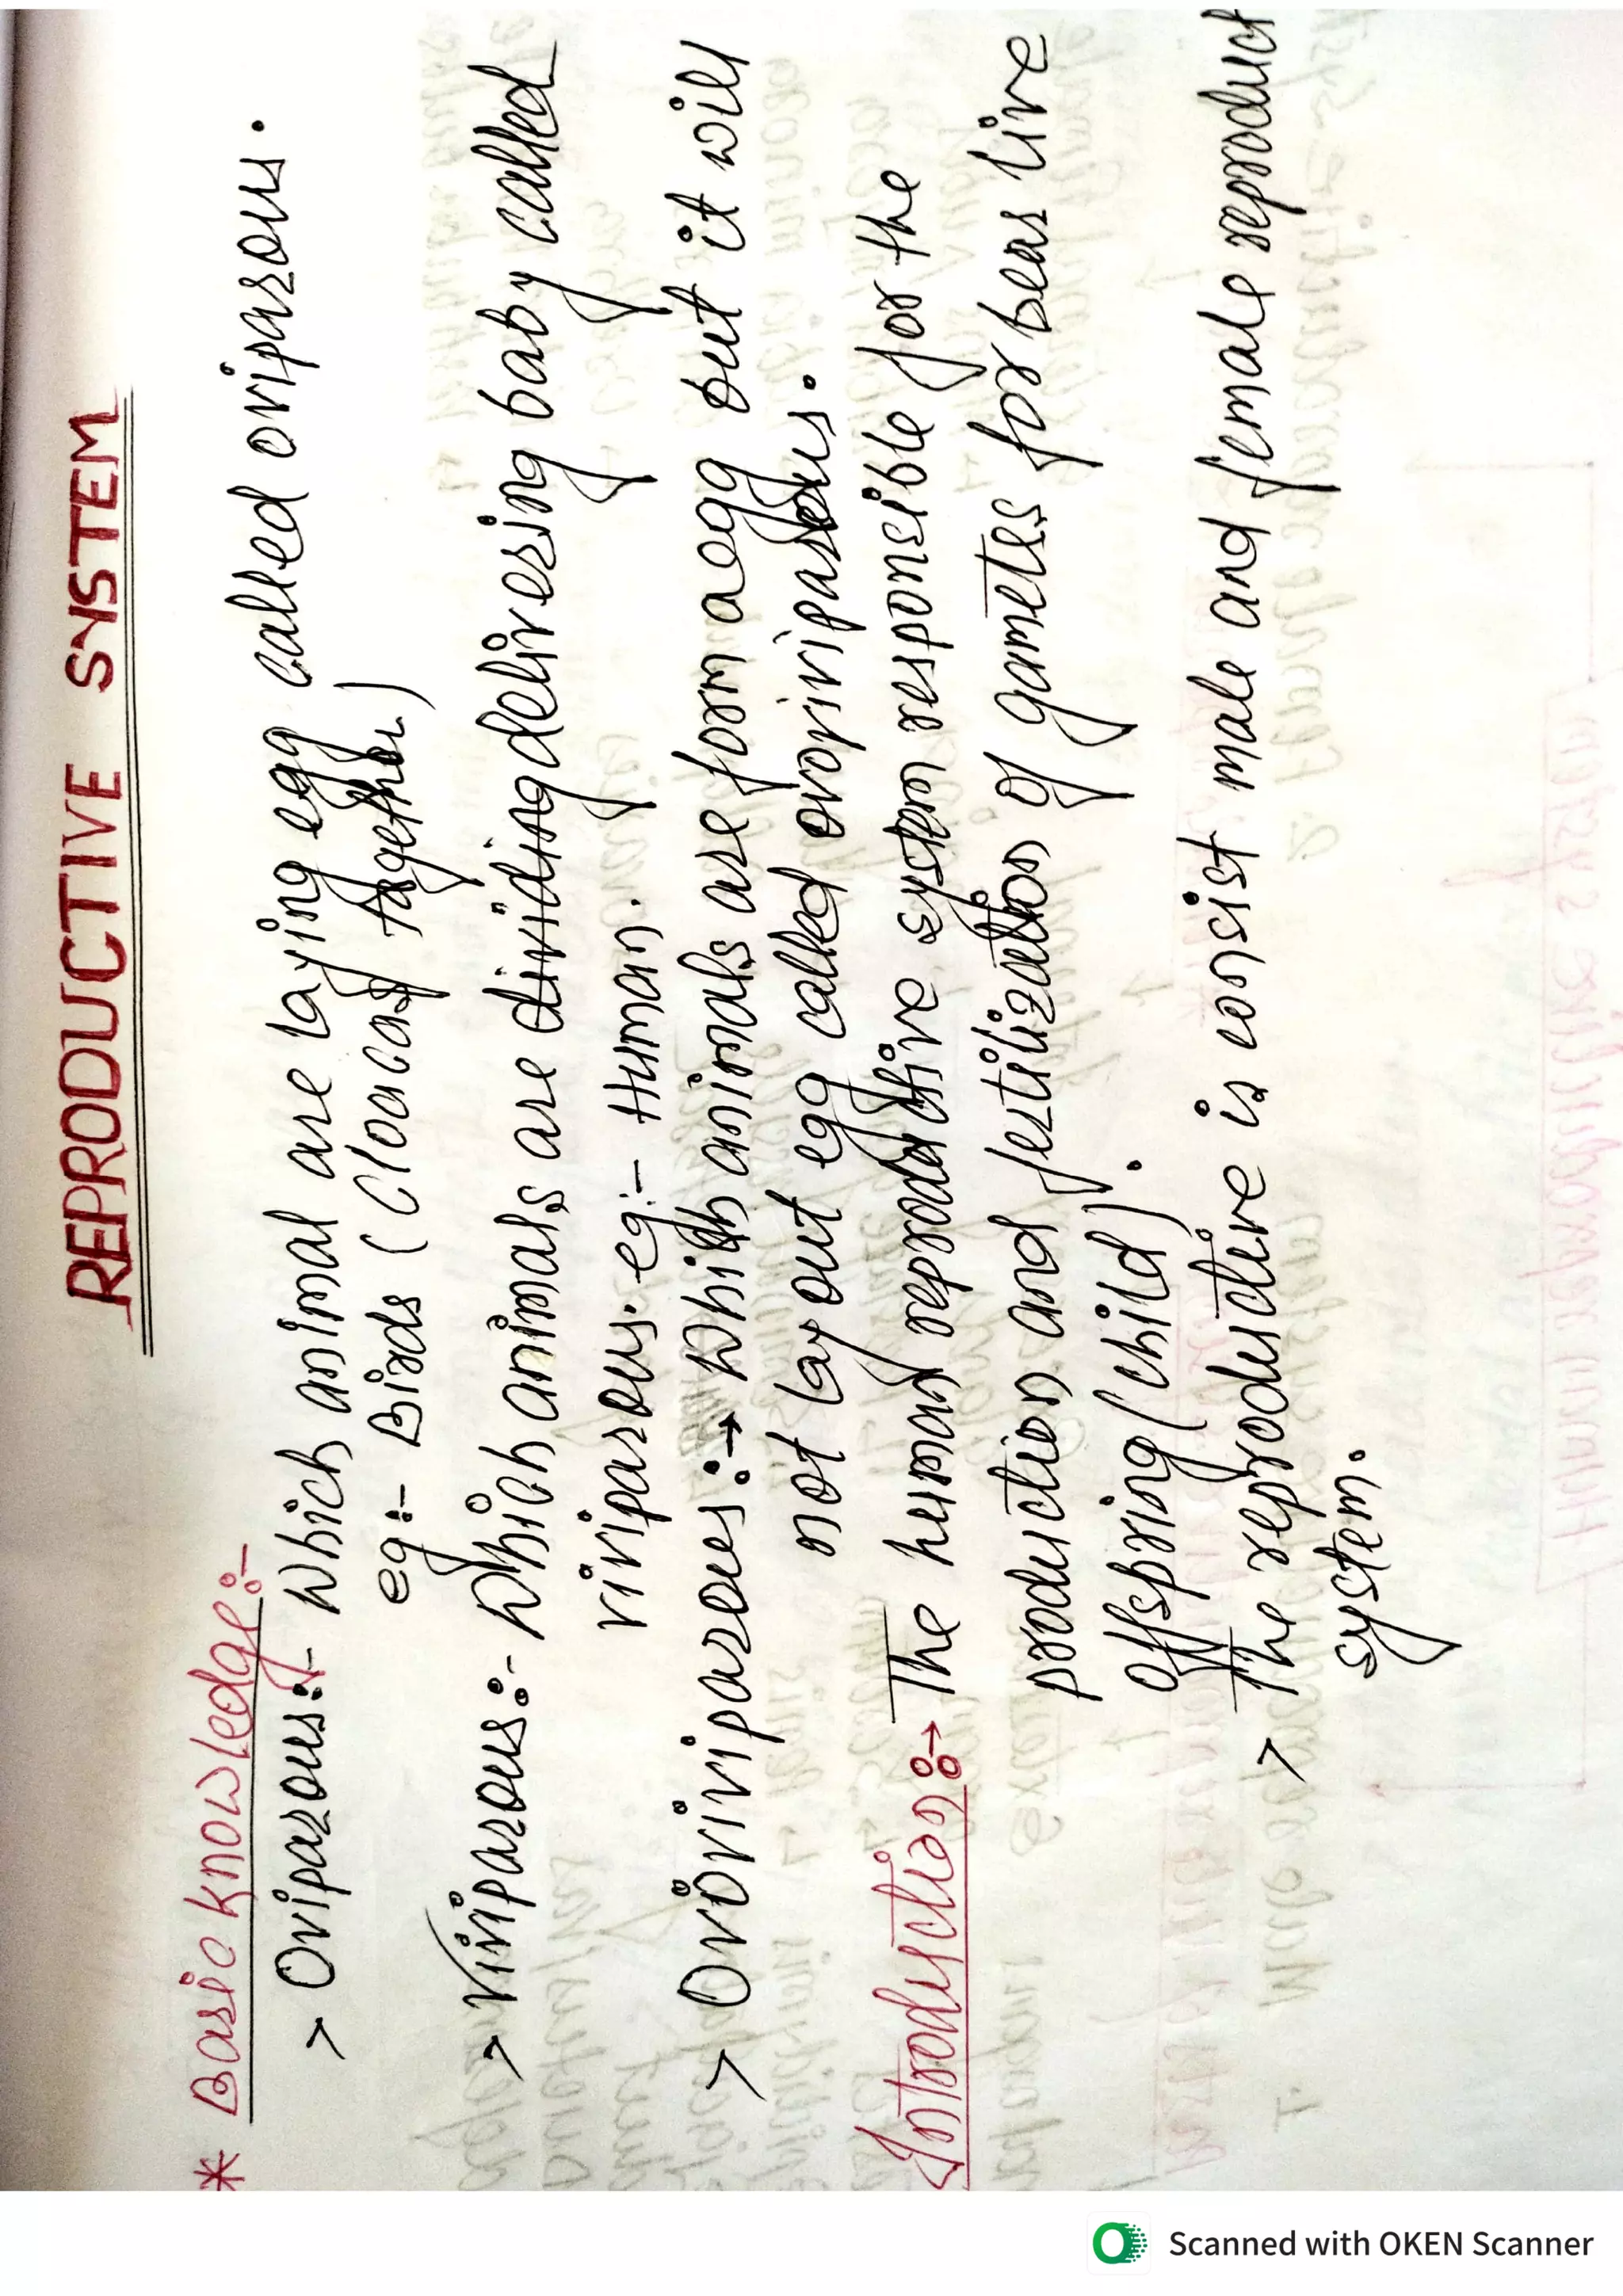 REPRODUCTIVE SYSTEM
* Basic knowledge:-
> Oviparous:- Which animal are laying egg called oviparous.
eg:- Birds (Cloaca together)
> Viviparous:- Which animals are dividing delivering baby called
viviparous. eg:- Human.
> Ovoviviparous:→ Which animals are form a egg but it will
not lay out egg called ovoviviparous.
Introduction:→ The human reproductive system responsible for the
production and fertilization of gametes for bear live
offspring (child).
> The reproductive is consist male and female reproduct
system.
Scanned with OKEN Scanner